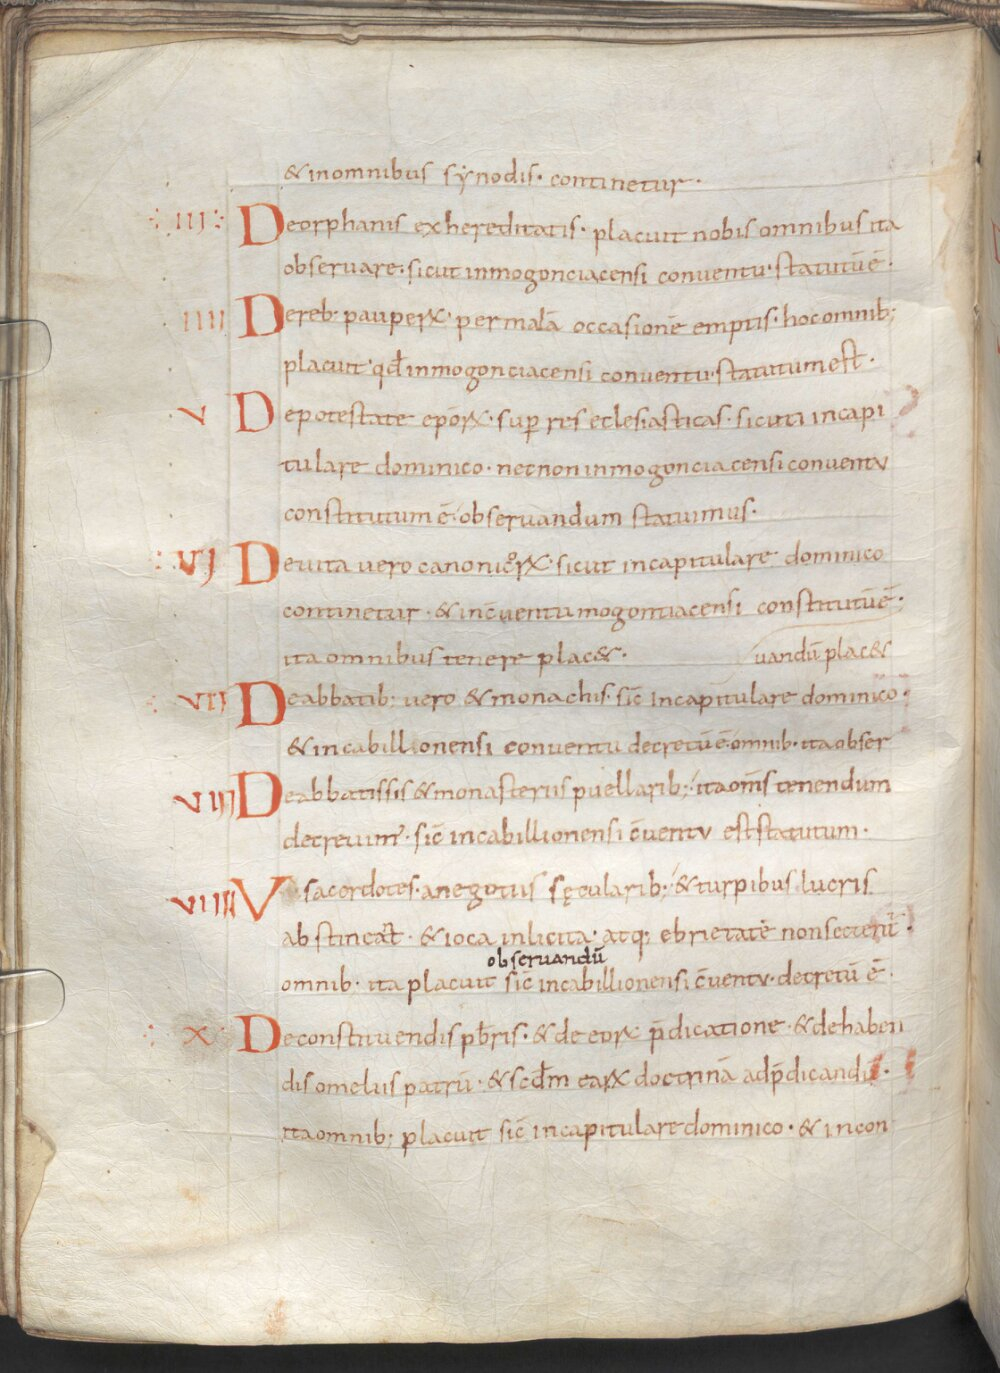 & inomnibus synodis· continetur·
III Deorphanis exhereditatis· placuit nobis omnibus ita
observare· sicut inmogonciacensi conventu· statutū ē·
IIII Dereb· pauperꝝ· per malā occasionē emptis· hoc omnib;
placuit· qđ inmogonciacensi conventu· statutum est·
V Depotestate epōrꝝ· sup res eclesiasticas· sicuti incapi
tulare dominico· necnon inmogonciacensi conventu
constitutum ē· observandum statuimus·
VI Deuita vero canonicorꝝ· sicut incapitulare dominico
continetur· & inc̄uentu mogontiacensi constitutū ē·
ita omnibus tenere plac&·
uandū plac&
VII Deabbatib; vero & monachis· sic̄ incapitulare dominico·
& incabillionensi conventu decretū ē· omnib· ita obser
VIII Deabbatissis & monasteriis puellarib; ita om̄s tenendum
decreuim᾽· sic̄ incabillionensi c̄uentu est statutum·
VIIII V· sacerdotes· anegotiis sęcularib; & turpibus lucris
abstineāt· & ioca inlicita· atq; ebrietatē nonsectent̄·
observandū
omnib· ita placuit sic̄ incabillionensi c̄uentu· decretū ē·
X Deconstituendis pb̄ris· & de eorꝝ p̄dicatione· & dehaben
dis omeliis patrū· & scd̄m earꝝ doctrinā adp̄dicandū·
ita omnib; placuit sic̄ incapitulare dominico· & incon